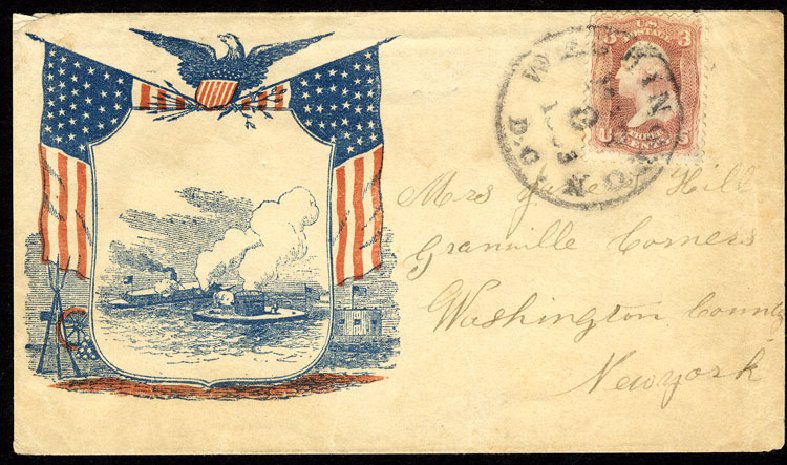 U.S. POSTAGE
3 3
U THREE S
CENTS
WASHINGTON D.C.
Mrs Jane Hill
Granville Corners
Washington County
Newyork